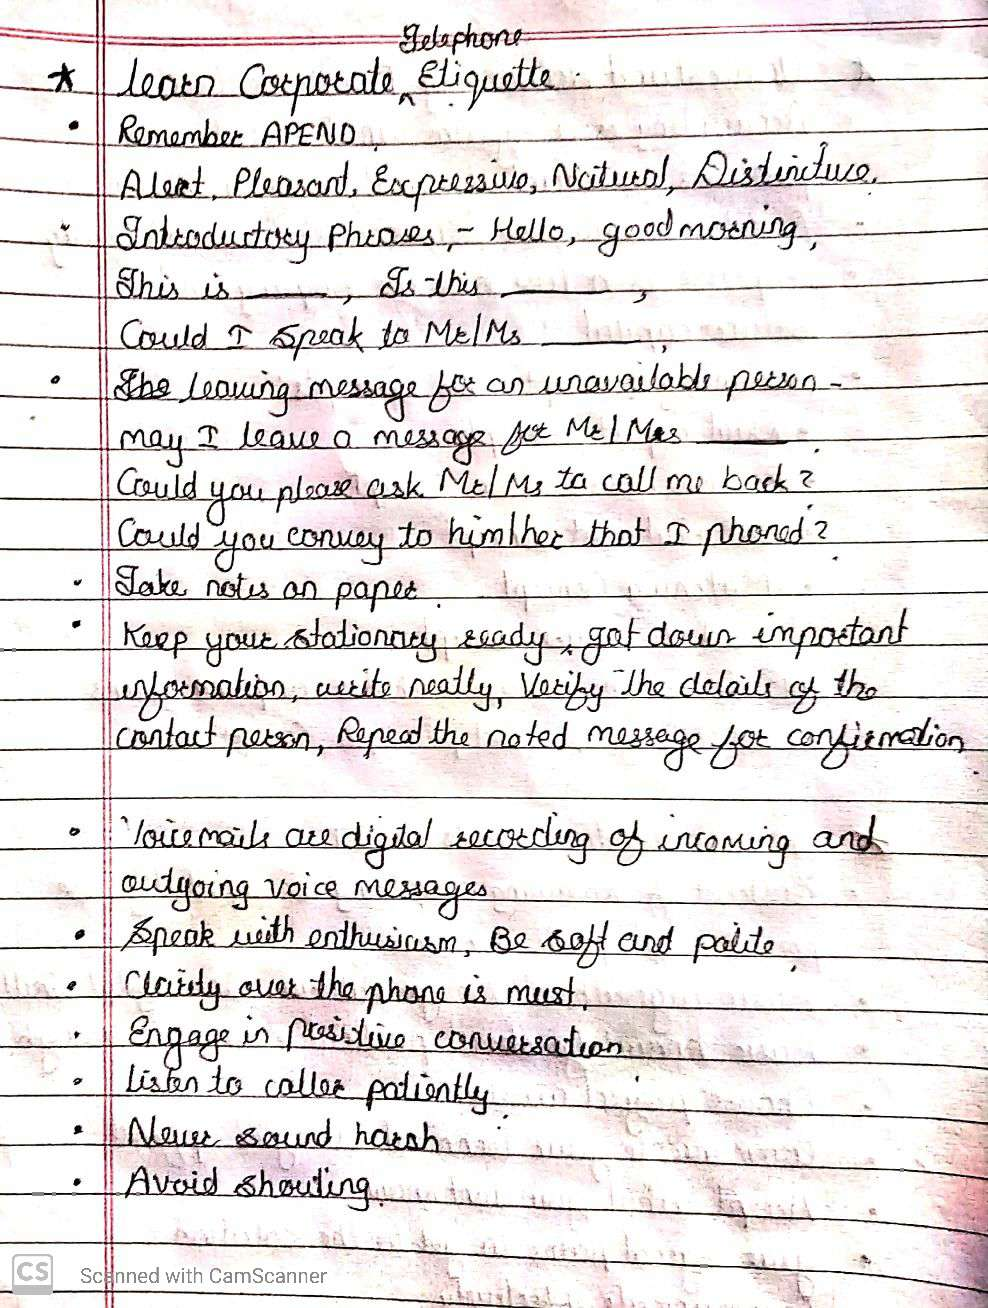 Telephone
★ learn Corporate ^ Etiquette.
• Remember APEND.
Alert, Pleasant, Expressive, Natural, Distinctive.
• Introductory Phrases, - Hello, good morning,
This is ______, Is this ______,
Could I speak to Mr/Ms ______,
• The leaving message for an unavailable person -
may I leave a message for Mr/Mrs ______.
Could you please ask Mr/Ms to call me back?
Could you convey to him/her that I phoned?
• Take notes on paper.
• Keep your stationary ready, got down important
information, write neatly, Verify the details of the
contact person, Repeat the noted message for confirmation.
• Voicemails are digital recording of incoming and
outgoing voice messages
• Speak with enthusiasm, Be soft and polite,
• Clarity over the phone is must.
• Engage in positive conversation
• Listen to caller patiently.
• Never sound harsh
• Avoid shouting.
CS Scanned with CamScanner